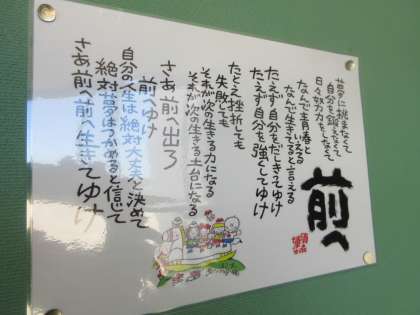 前へ
夢に挑まなくて
自分を鍛えなくて
日々努力をしなくて
なんで青春と
いえる
なんで生きてると言える
たえず自分をだしきってゆけ
たえず自分を強くしてゆけ
たとえ挫折しても
失敗しても
それが次の生きる力になる
それが次の生きる土台になる
さあ前へ出ろ
前へゆけ
自分の人生は絶対大丈夫と決めて
絶対夢はつかめると信じて
さあ前へ前へ生きてゆけ